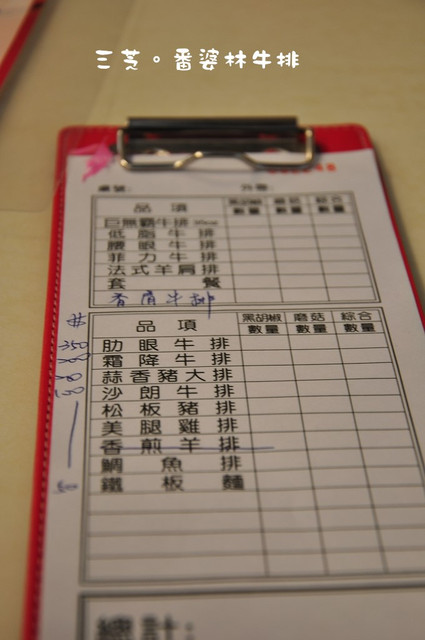 三芝。番婆林牛排
編號:
品項 黑胡椒數量 蘑菇數量 綜合數量
巨無霸牛排
低脂牛排
腰眼牛排
菲力牛排
法式羊肩排
套餐
品項 黑胡椒數量 蘑菇數量 綜合數量
肋眼牛排
霜降牛排
蒜香豬大排
沙朗牛排
松板豬排
美腿雞排
香煎羊排
鯛魚排
鐵板麵
總計: